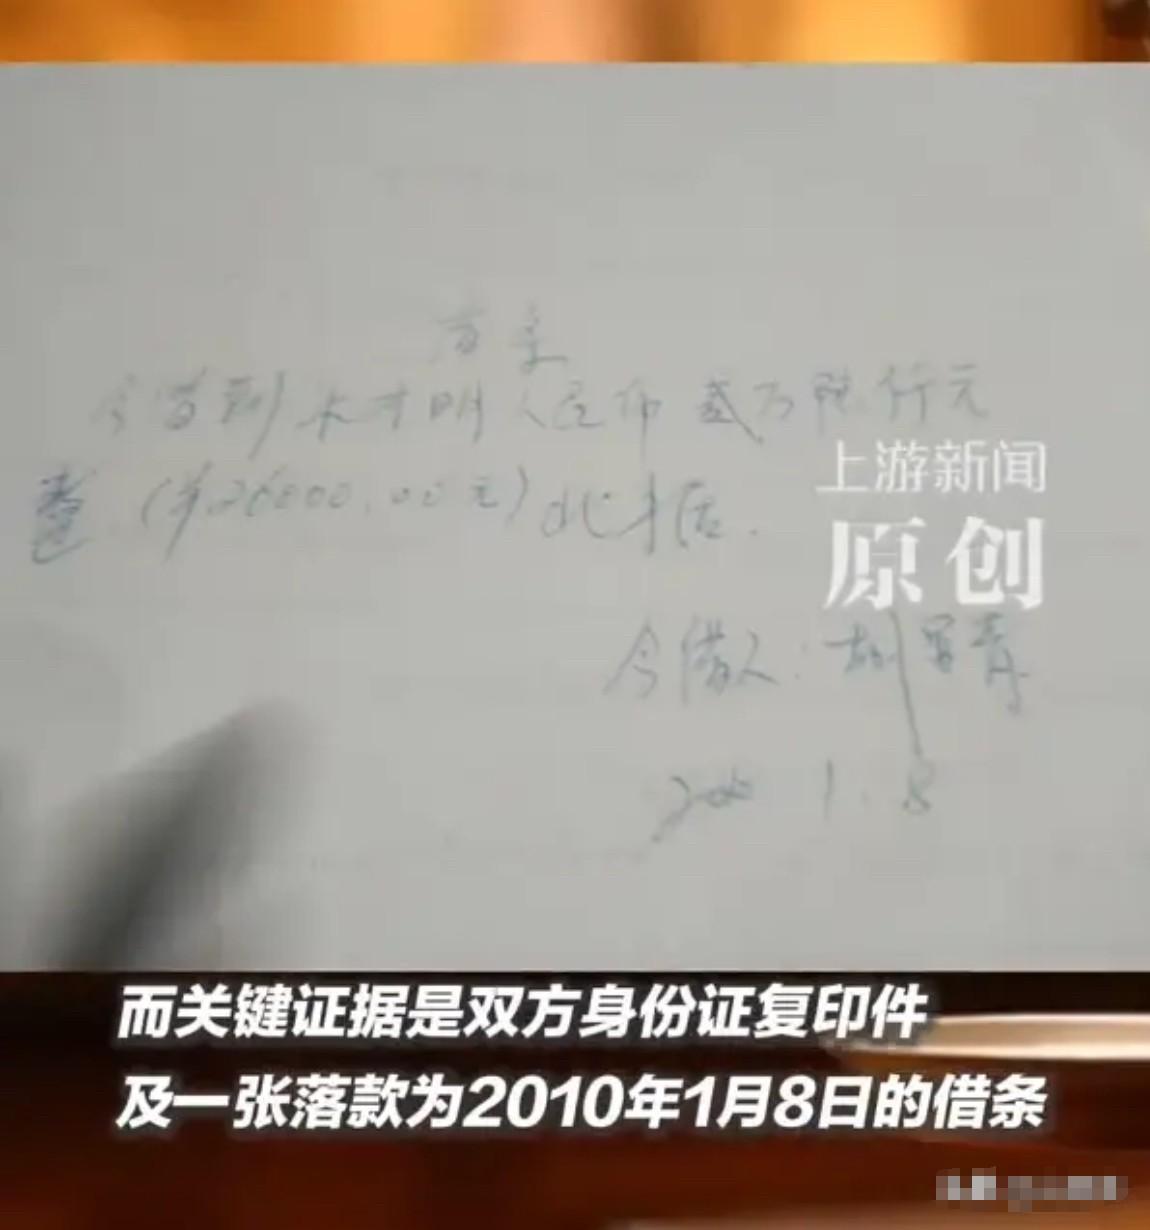 借条
今借到 人民币 贰万陆仟元
整 (¥26000.00元) 此据.
上游新闻
原创
今借人: 胡
1.8
而关键证据是双方身份证复印件
及一张落款为2010年1月8日的借条